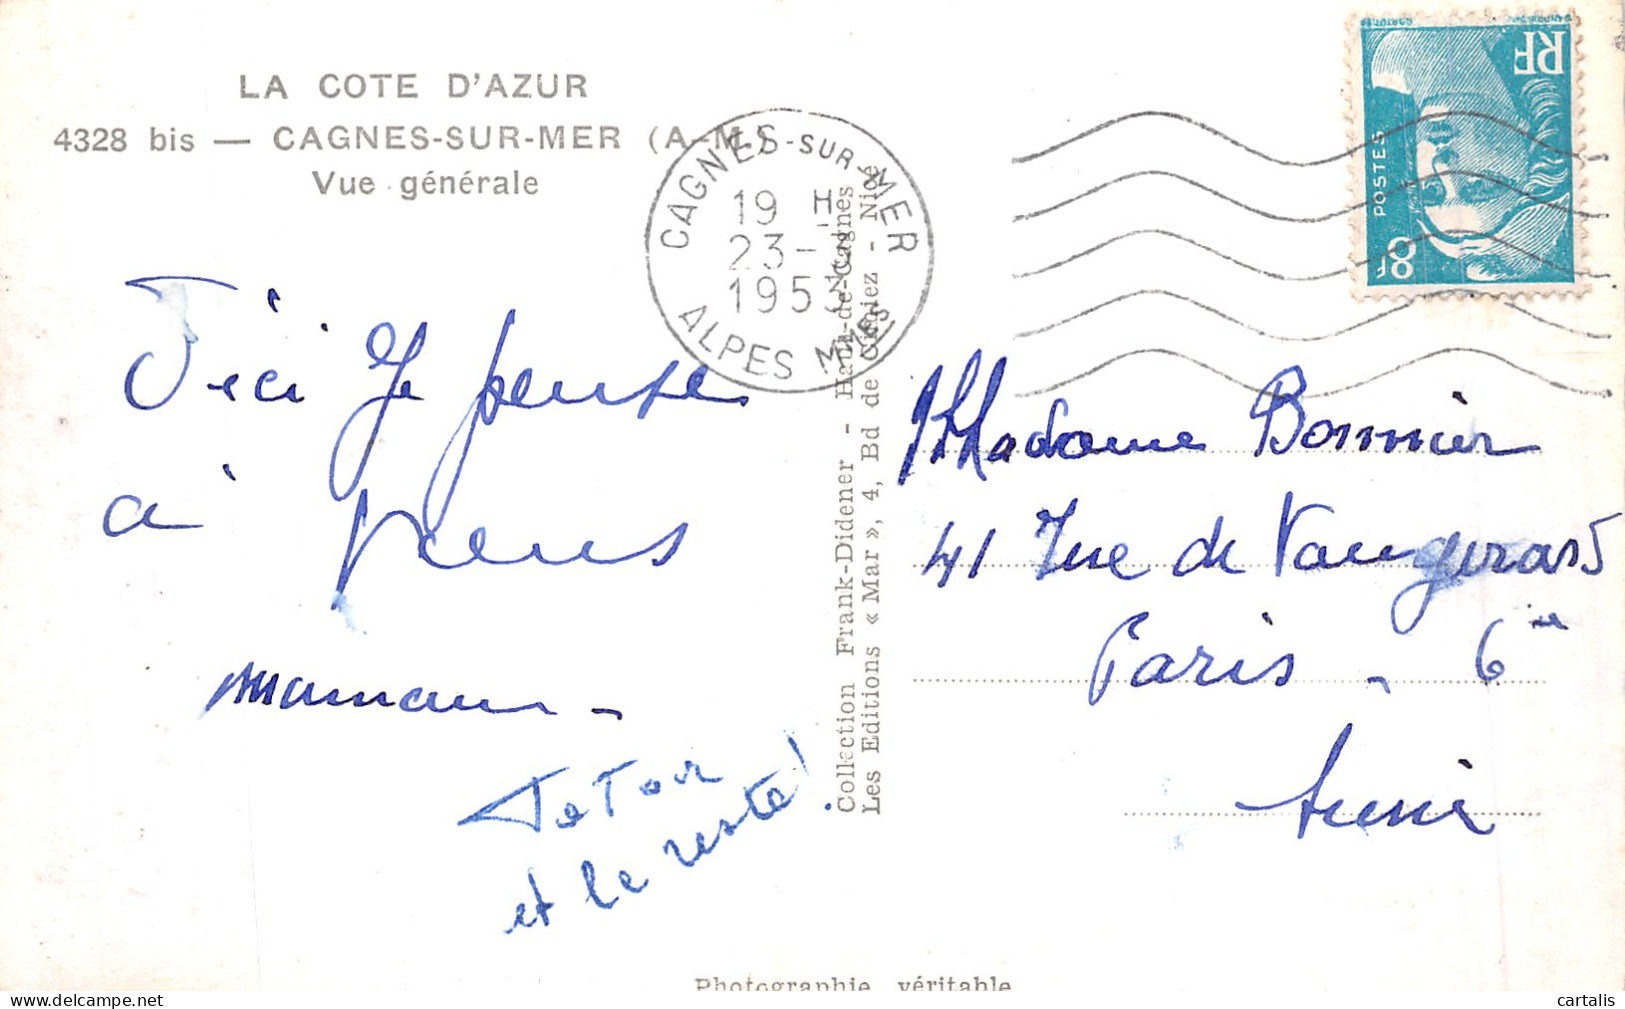 LA COTE D'AZUR
4328 bis — CAGNES-SUR-MER (A-M.)
Vue générale
CAGNES-SUR-MER
19 H
23-
1953
ALPES MMES
RF
POSTES
8F
D'ici Je pense
à vous
maman -
Totor
et le reste!
Collection Frank-Didener - Haut-de-Cagnes
Les Editions « Mar », 4, Bd de Cimiez - Nice
Madame Bonnier
41 rue de Vaugirard
Paris - 6
Photographie véritable
cartalis